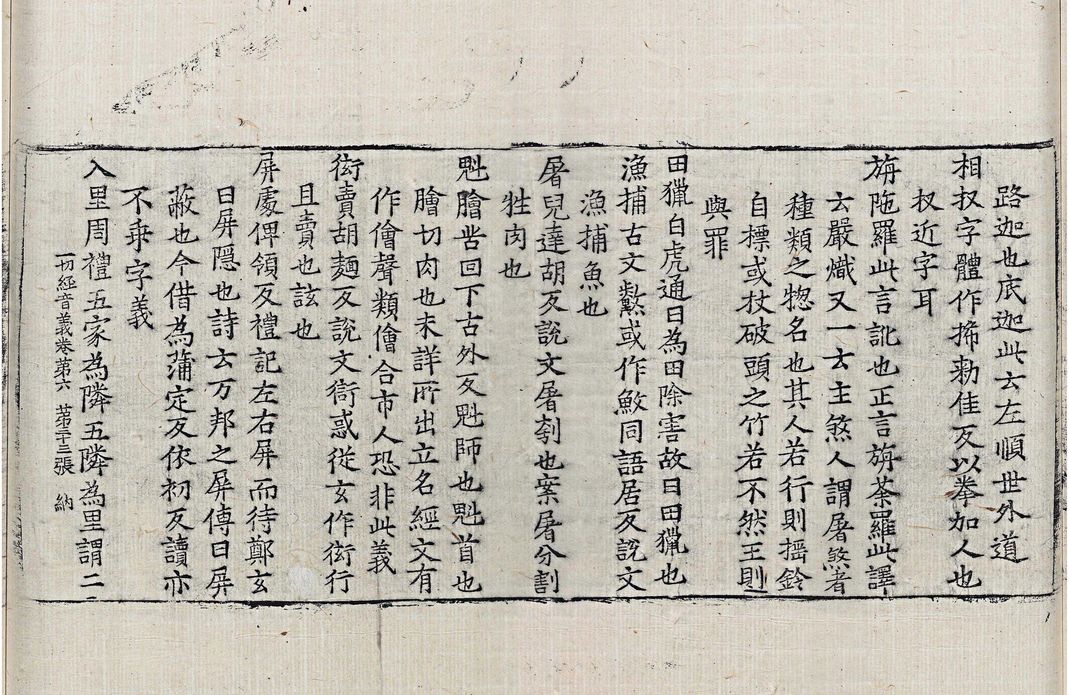 路迦也底迦此云左順世外道
相扠字體作搋勑佳反以拳加人也
扠近字耳
旃陁羅此言訛也正言旃荼羅此譯
云嚴熾又一云主煞人謂屠煞者
種類之惣名也其人若行則揺鈴
自標或杖破頭之竹若不然王則
與罪
田獵白虎通曰為田除害故曰田獵也
漁捕古文𣀮或作䱷同語居反說文
漁捕魚也
屠兒達胡反說文屠刳也案屠分割
牲肉也
魁膾苦回下古外反魁師也魁首也
膾切肉也未詳所出立名經文有
作儈聲類儈合市人恐非此義
衒賣胡麵反說文衒或從玄作衒行
且賣也該也
屏處俾領反禮記左右屏而待鄭玄
曰屏隱也詩云万邦之屏傳曰屏
蔽也今借為蒲定反依初反讀亦
不乘字義
入里周禮五家為隣五隣為里謂二
一切經音義卷第六 苐二十三張 納